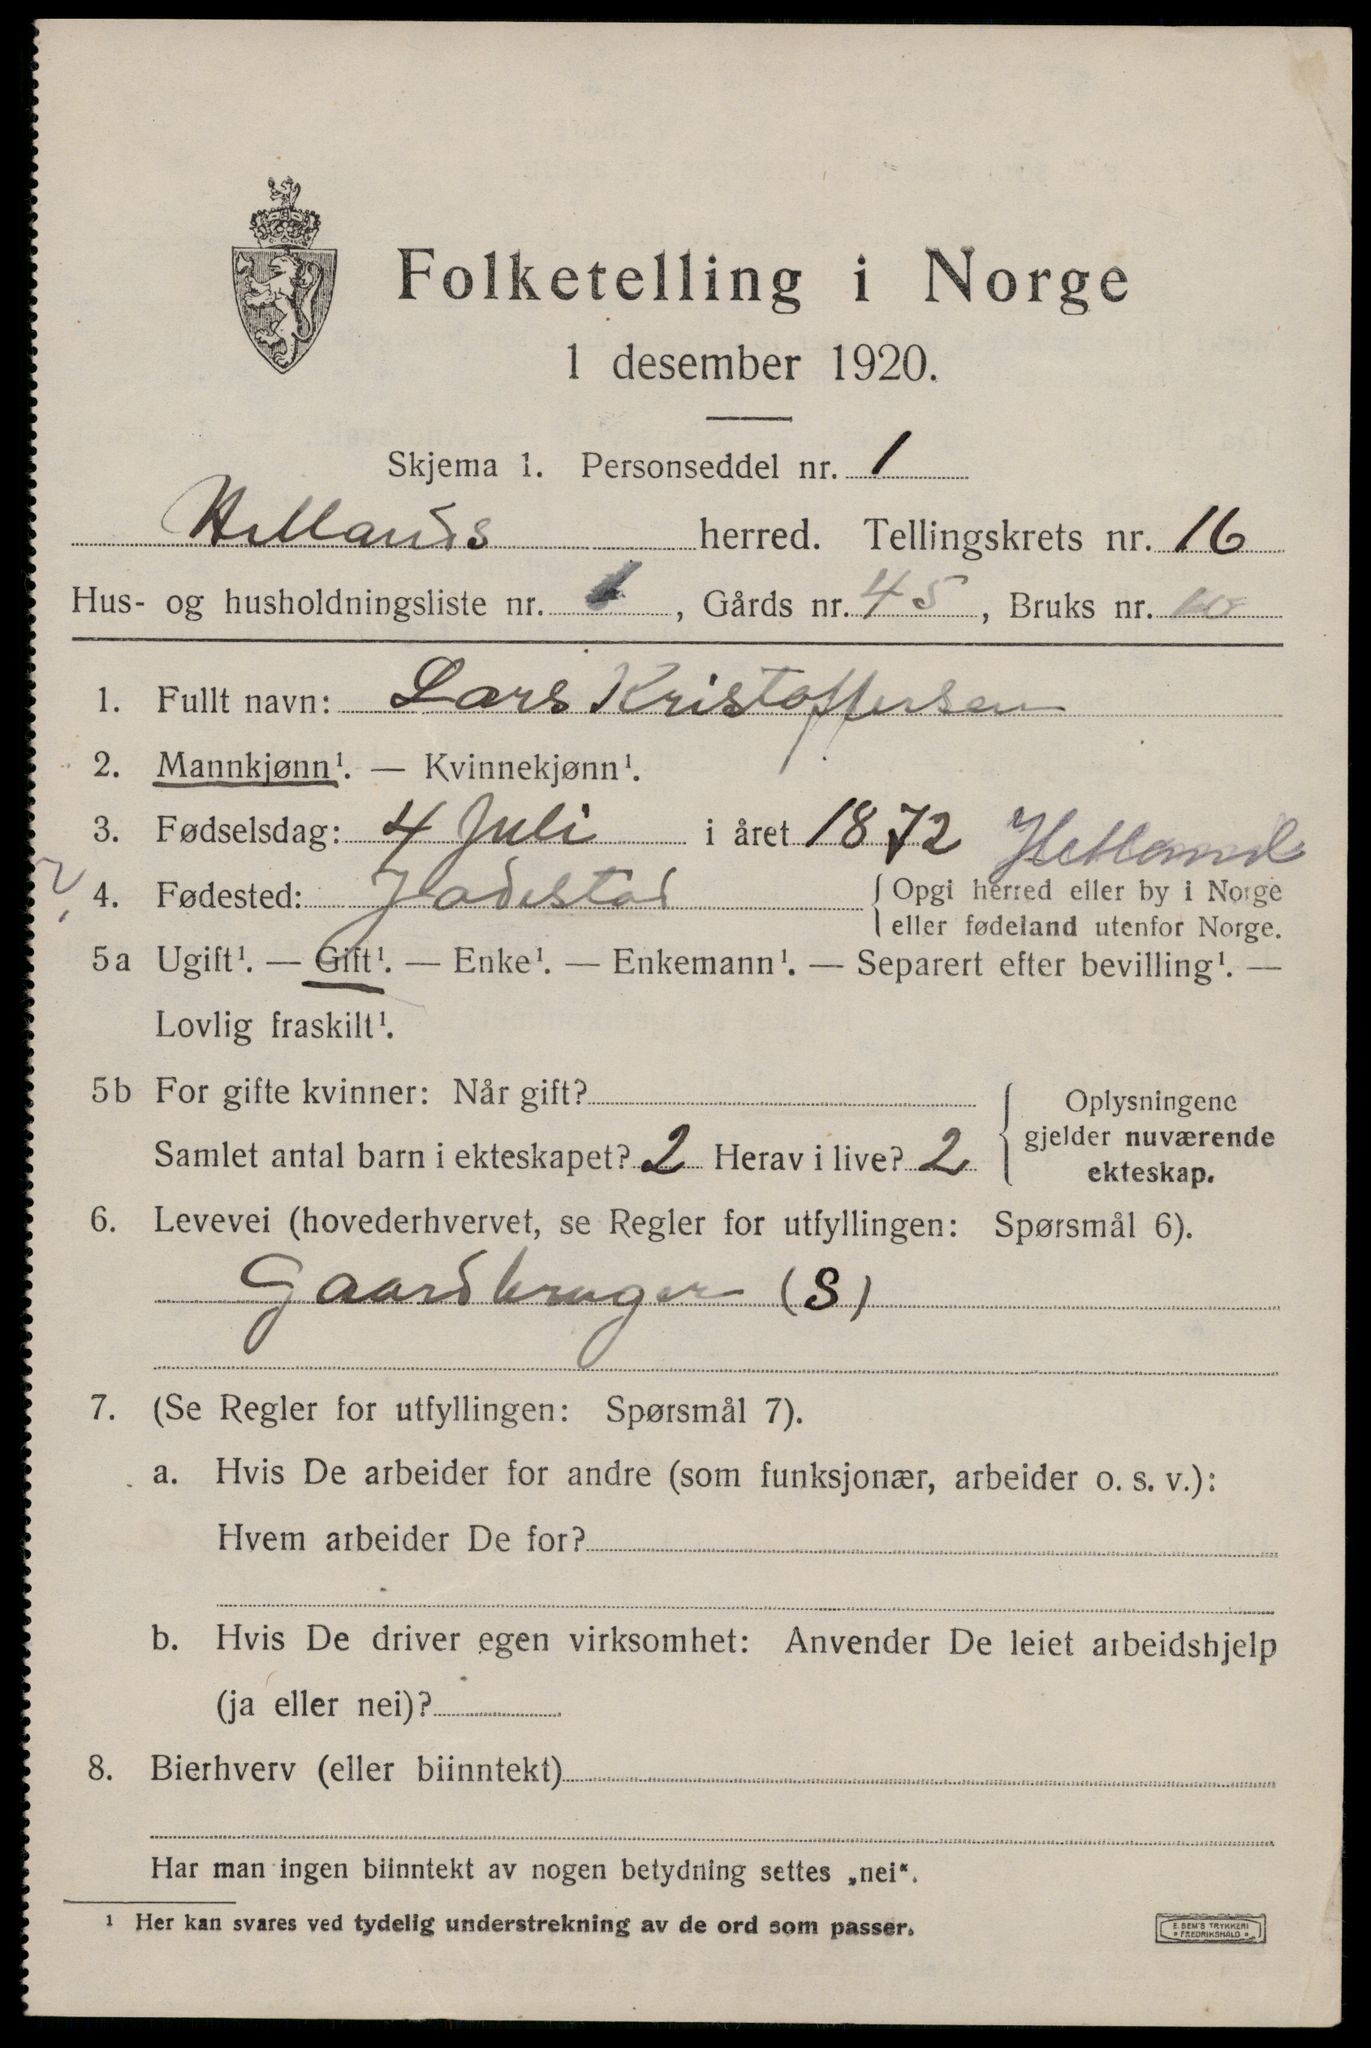 Folketelling i Norge
1 desember 1920.
Skjema 1. Personseddel nr. 1
Hetlands herred. Tellingskrets nr. 16
Hus- og husholdningsliste nr. 1, Gårds nr. 45, Bruks nr.
1. Fullt navn: Lars Kristoffersen
2. Mannkjønn¹. — Kvinnekjønn¹.
3. Fødselsdag: 4 Juli i året 1872 Hetland
4. Fødested: Jadestad {Opgi herred eller by i Norge
eller fødeland utenfor Norge.
5a Ugift¹. — Gift¹. — Enke¹. — Enkemann¹. — Separert efter bevilling¹. —
Lovlig fraskilt¹.
5b For gifte kvinner: Når gift?
Samlet antal barn i ekteskapet? 2 Herav i live? 2
Oplysningene
gjelder nuværende
ekteskap.
6. Levevei (hovederhvervet, se Regler for utfyllingen: Spørsmål 6).
Gaardbruger (S)
7. (Se Regler for utfyllingen: Spørsmål 7).
a. Hvis De arbeider for andre (som funksjonær, arbeider o. s. v.):
Hvem arbeider De for?
b. Hvis De driver egen virksomhet: Anvender De leiet arbeidshjelp
(ja eller nei)?
8. Bierhverv (eller biinntekt)
Har man ingen biinntekt av nogen betydning settes „nei“.
¹ Her kan svares ved tydelig understrekning av de ord som passer.
E. SEM'S TRYKKERI
FREDRIKSHALD